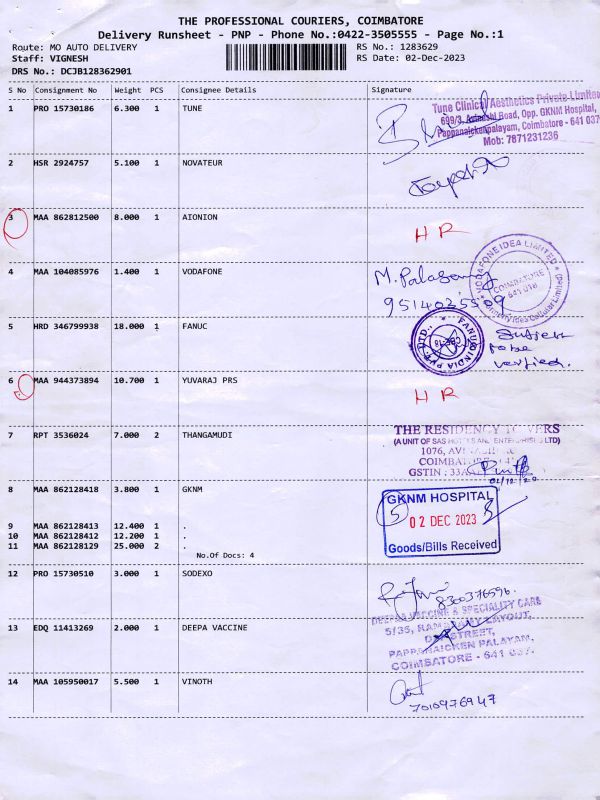 THE PROFESSIONAL COURIERS, COIMBATORE
Delivery Runsheet - PNP - Phone No.:0422-3505555 - Page No.:1
Route: MO AUTO DELIVERY
RS No.: 1283629
Staff: VIGNESH
RS Date: 02-Dec-2023
DRS No.: DCJB128362901
S No Consignment No Weight PCS Consignee Details Signature
1 PRO 15730186 6.300 1 TUNE
Tune Clinical Aesthetics Private Limited
699/3, Road, Opp. GKNM Hospital,
Pappanaickenpalayam, Coimbatore - 641 037
Mob: 7871231236
2 HSR 2924757 5.100 1 NOVATEUR
3 MAA 862812500 8.000 1 AIONION
HR
4 MAA 104085976 1.400 1 VODAFONE
VODAFONE IDEA LIMITED
COIMBATORE
641 018
(Formerly Idea Cellular Limited)
M. Palasamy
9514025509
5 HRD 346799938 18.000 1 FANUC
FANUC INDIA PVT. LTD.,
CBE-18
Subject
to be
verified.
6 MAA 944373894 10.700 1 YUVARAJ PRS
HR
7 RPT 3536024 7.000 2 THANGAMUDI
THE RESIDENCY TOWERS
(A UNIT OF SAS HOTELS AND ENTERPRISES LTD)
1076,
COIMBATORE
GSTIN :
8 MAA 862128418 3.800 1 GKNM
GKNM HOSPITAL
02 DEC 2023
Goods/Bills Received
9 MAA 862128413 12.400 1 .
10 MAA 862128412 12.200 1 .
11 MAA 862128129 25.000 2 .
No.Of Docs: 4
12 PRO 15730510 3.000 1 SODEXO
8300376596.
13 EDQ 11413269 2.000 1 DEEPA VACCINE
DEEPA VACCINE & SPECIALITY CARE
5/35, RAMASAMY LAYOUT,
STREET,
PAPPANAICKEN PALAYAM,
COIMBATORE - 641 037.
14 MAA 105950017 5.500 1 VINOTH
7010976947